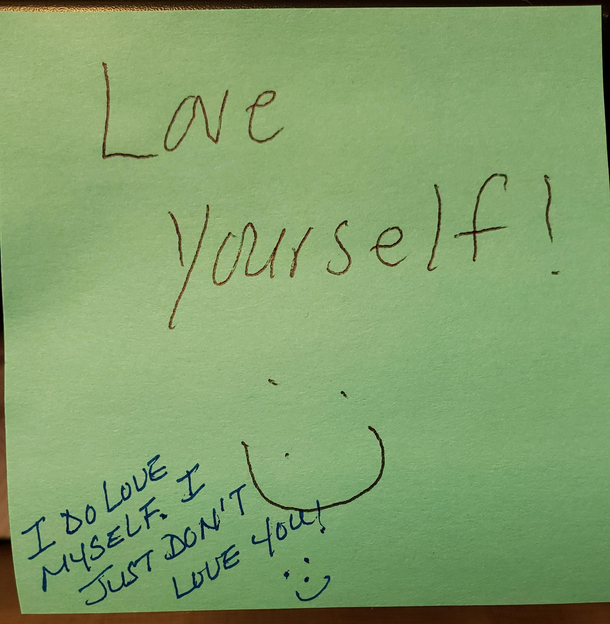 Love
Yourself!
I DO LOVE
MYSELF. I
JUST DON'T
LOVE YOU!